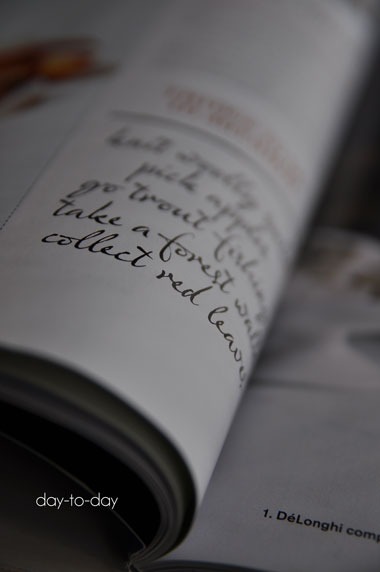 knit woolly
pick apples
go trout fishing
take a forest walk
collect red leaves
1. DéLonghi comp
day-to-day